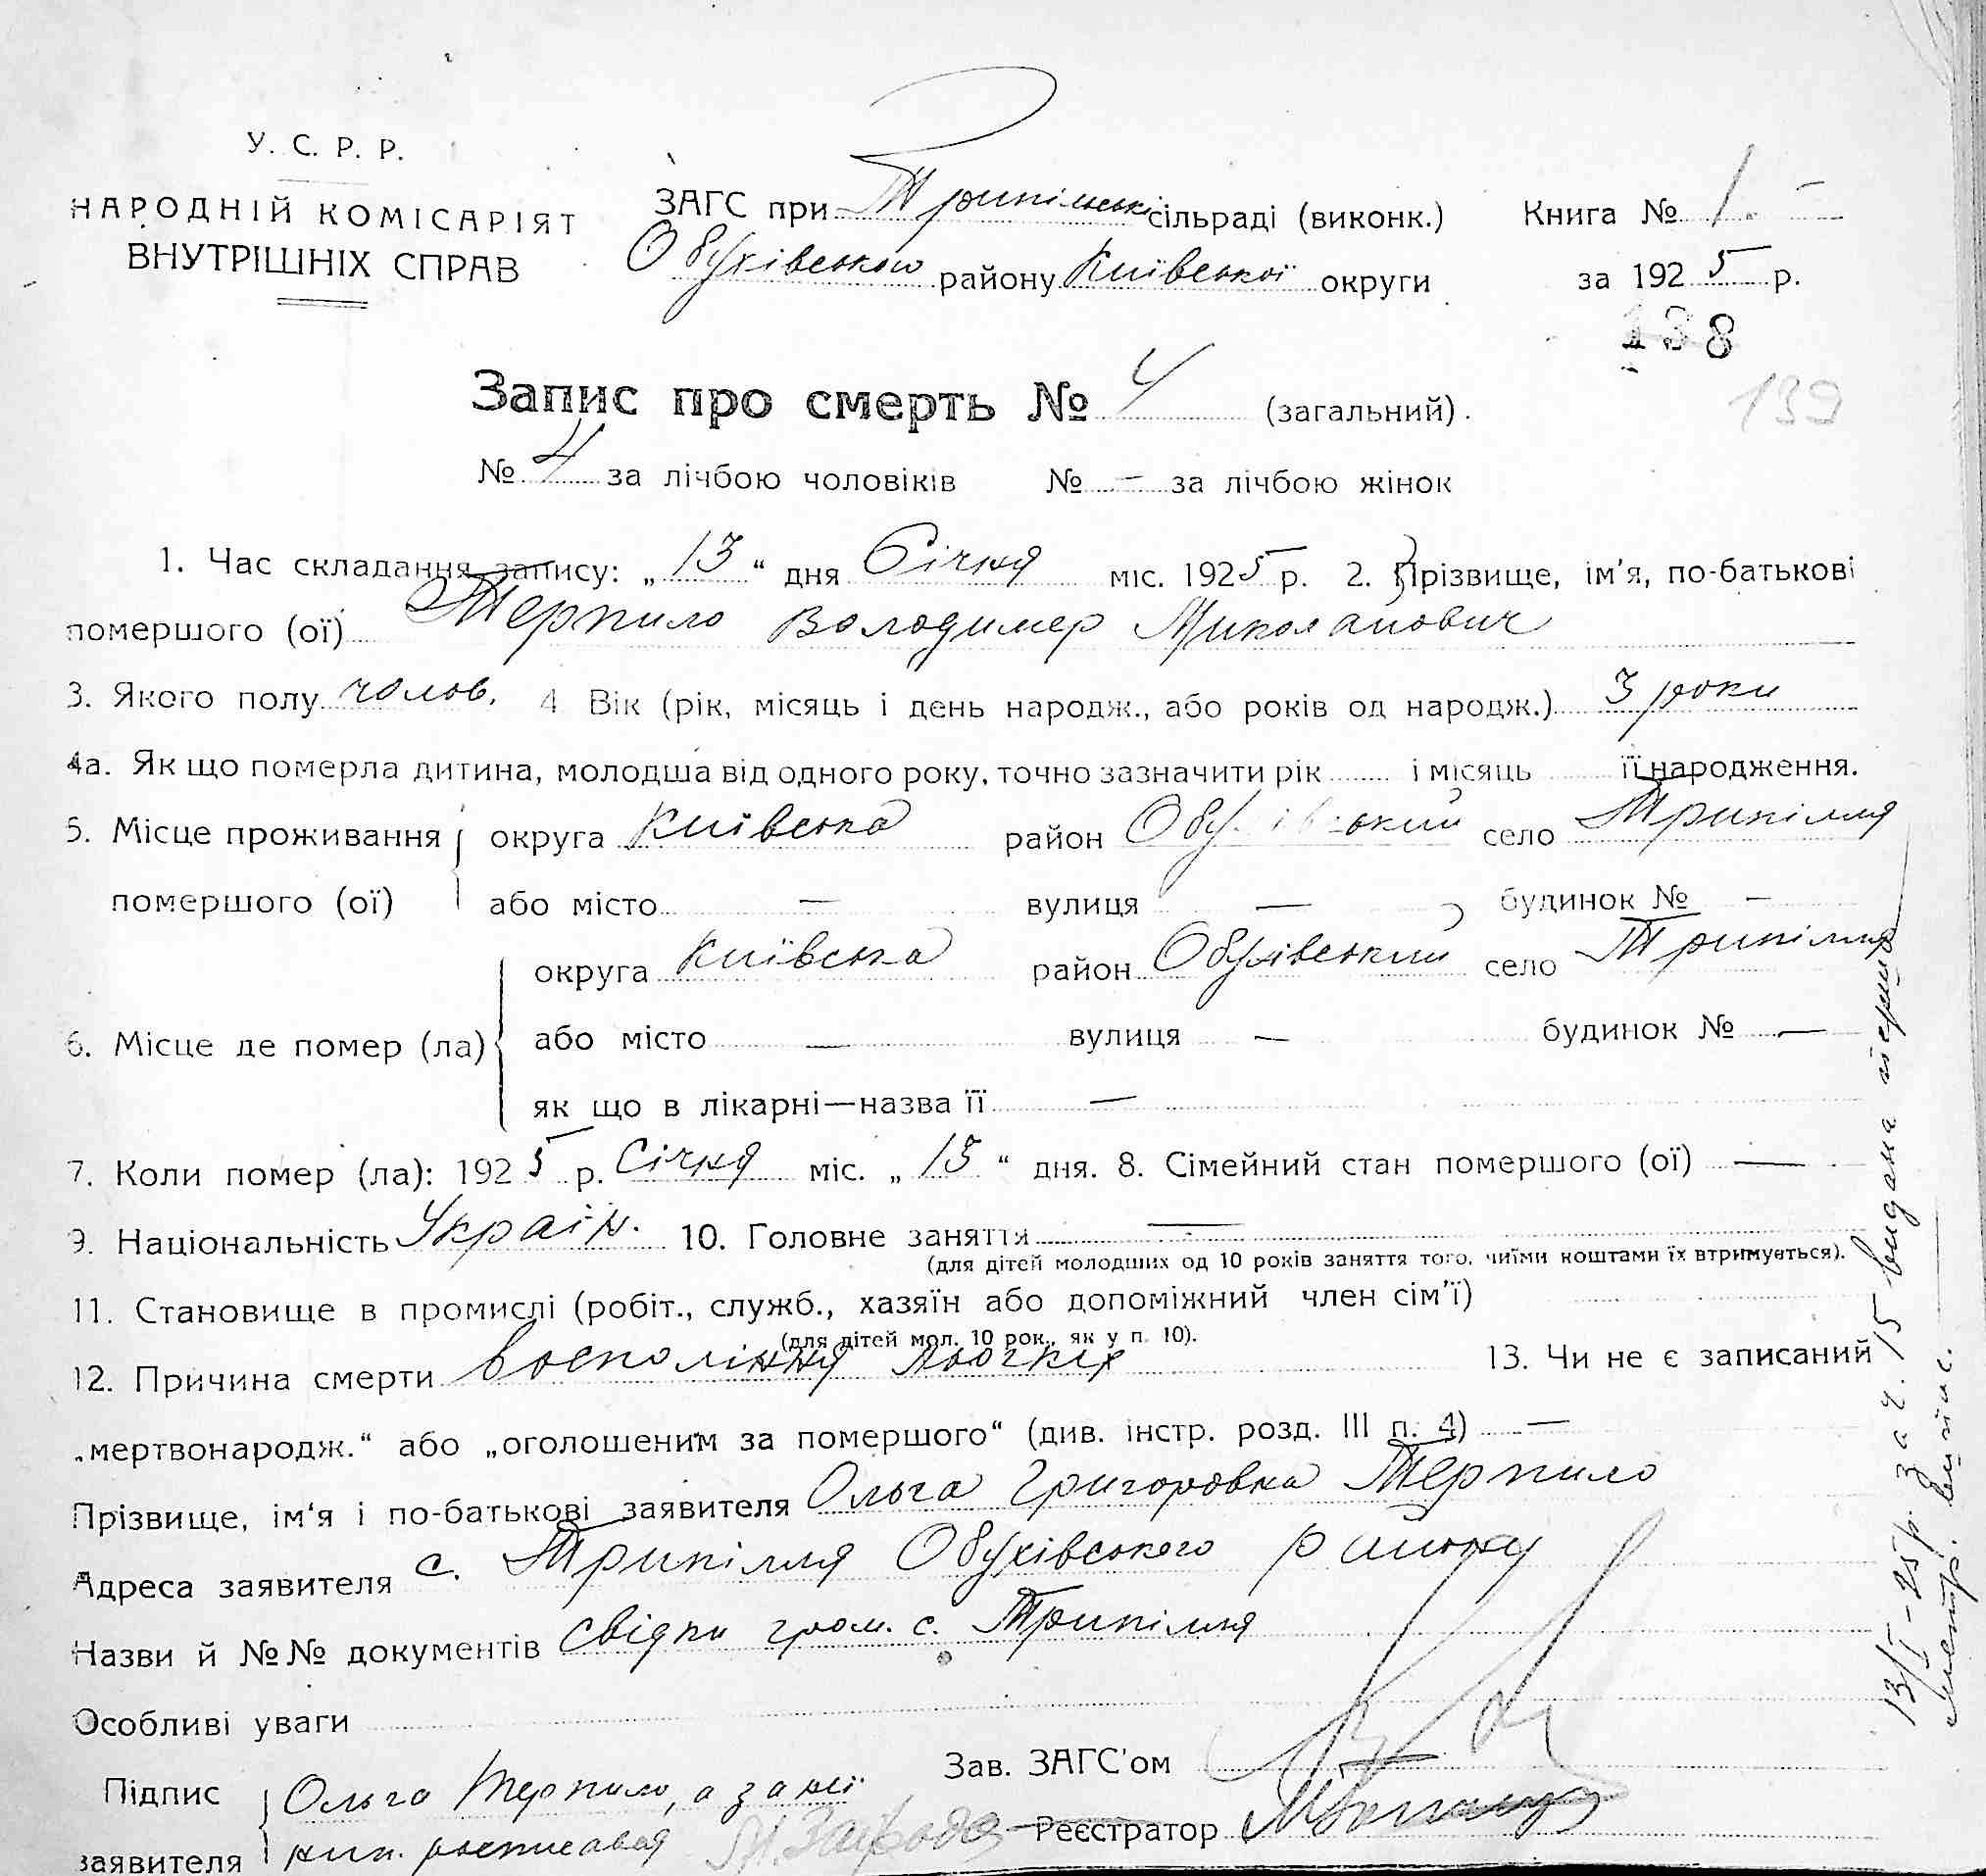 У. С. Р. Р.
НАРОДНІЙ КОМІСАРІЯТ
ВНУТРІШНІХ СПРАВ
ЗАГС при Трипільські сільраді (виконк.) Книга № 1.
Обухівського району Київської округи за 1925 р.
138
139
Запис про смерть № 4 (загальний).
№ 4 за лічбою чоловіків № — за лічбою жінок
1. Час складання запису: „13“ дня Січня міс. 1925 р. 2. Прізвище, ім'я, по-батькові
помершого (ої) Терпило Володимер Миколайович
3. Якого полу чолов. 4 Вік (рік, місяць і день народж., або років од народж.) 3 роки
4а. Як що померла дитина, молодша від одного року, точно зазначити рік і місяць її народження.
5. Місце проживання округа Київська район Обухівський село Трипілля
помершого (ої) або місто — вулиця — будинок № —
округа Київська район Обухівський село Трипілля
6. Місце де помер (ла) або місто — вулиця — будинок № —
як що в лікарні—назва її —
7. Коли помер (ла): 1925 р. Січня міс. „13“ дня. 8. Сімейний стан помершого (ої) —
9. Національність Україн. 10. Головне заняття —
(для дітей молодших од 10 років заняття того, чиїми коштами їх втримується).
11. Становище в промислі (робіт., служб., хазяїн або допоміжний член сім'ї)
(для дітей мол. 10 рок., як у п. 10).
12. Причина смерти воспоління льогких 13. Чи не є записаний
„мертвонародж.“ або „оголошеним за помершого“ (див. інстр. розд. III п. 4) —
Прізвище, ім'я і по-батькові заявителя Ольга Григоровна Терпило
Адреса заявителя с. Трипілля Обухівського району
Назви й №№ документів свідки гром. с. Трипілля
Особливі уваги
Підпис Ольга Терпило, а за неї Зав. ЗАГС'ом
заявителя росписавсь Реєстратор
13/I-25 р. за ч. 15 видана перша